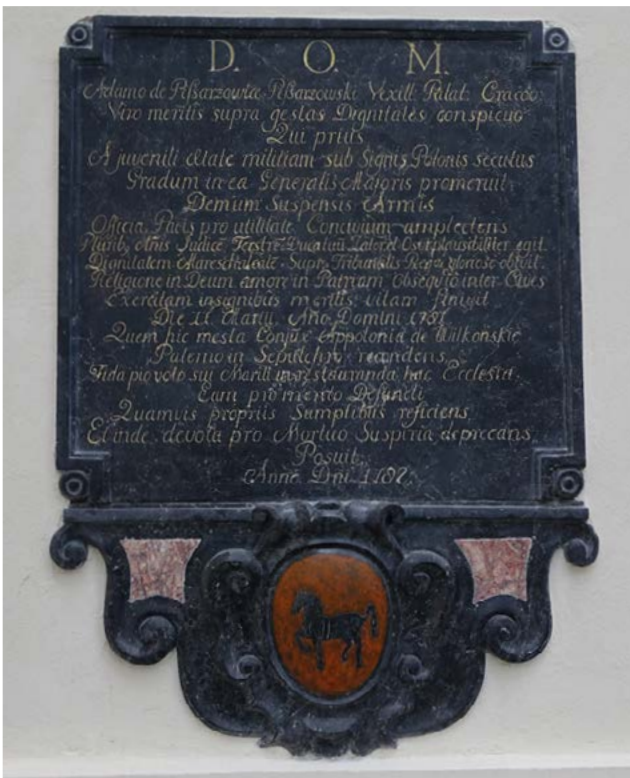 D. O. M.
Adamo de Pißarzowice Pißarzowski Vexill. Palat. Cracov.
Viro meritis supra gestas Dignitates conspicuo
Qui prius
A juvenili ætate militiam sub Signis Polonis secutus
Gradum in ea Generalis Majoris promeruit.
Demum Suspensis Armis
Officia Publ. pro utilitate Concivium amplectens
Plurib. Anis Judice Terstre Ducatuu Zator. et Osw. plausibiliter egit.
Dignitatem Mareschaleat. Supr. Tribunalis Regni gloriose obivit.
Religione in Deum amore in Patriam Obsequio inter Cives
Exercitam insignibus meritis vitam finivit
Die II. Martii. Año Domini
Quem hic mesta Conjux Appolonia de Wilkonskie
Paterno in Sepulchro recondens
Fida pio voto sui Mariti in restauranda hac Ecclesia.
Eam pro mento Defuncti
Quamvis propriis Sumptibus reficiens
Et inde devota pro Mortuo Suspiria deprecans
Posuit.
Anno Dni.